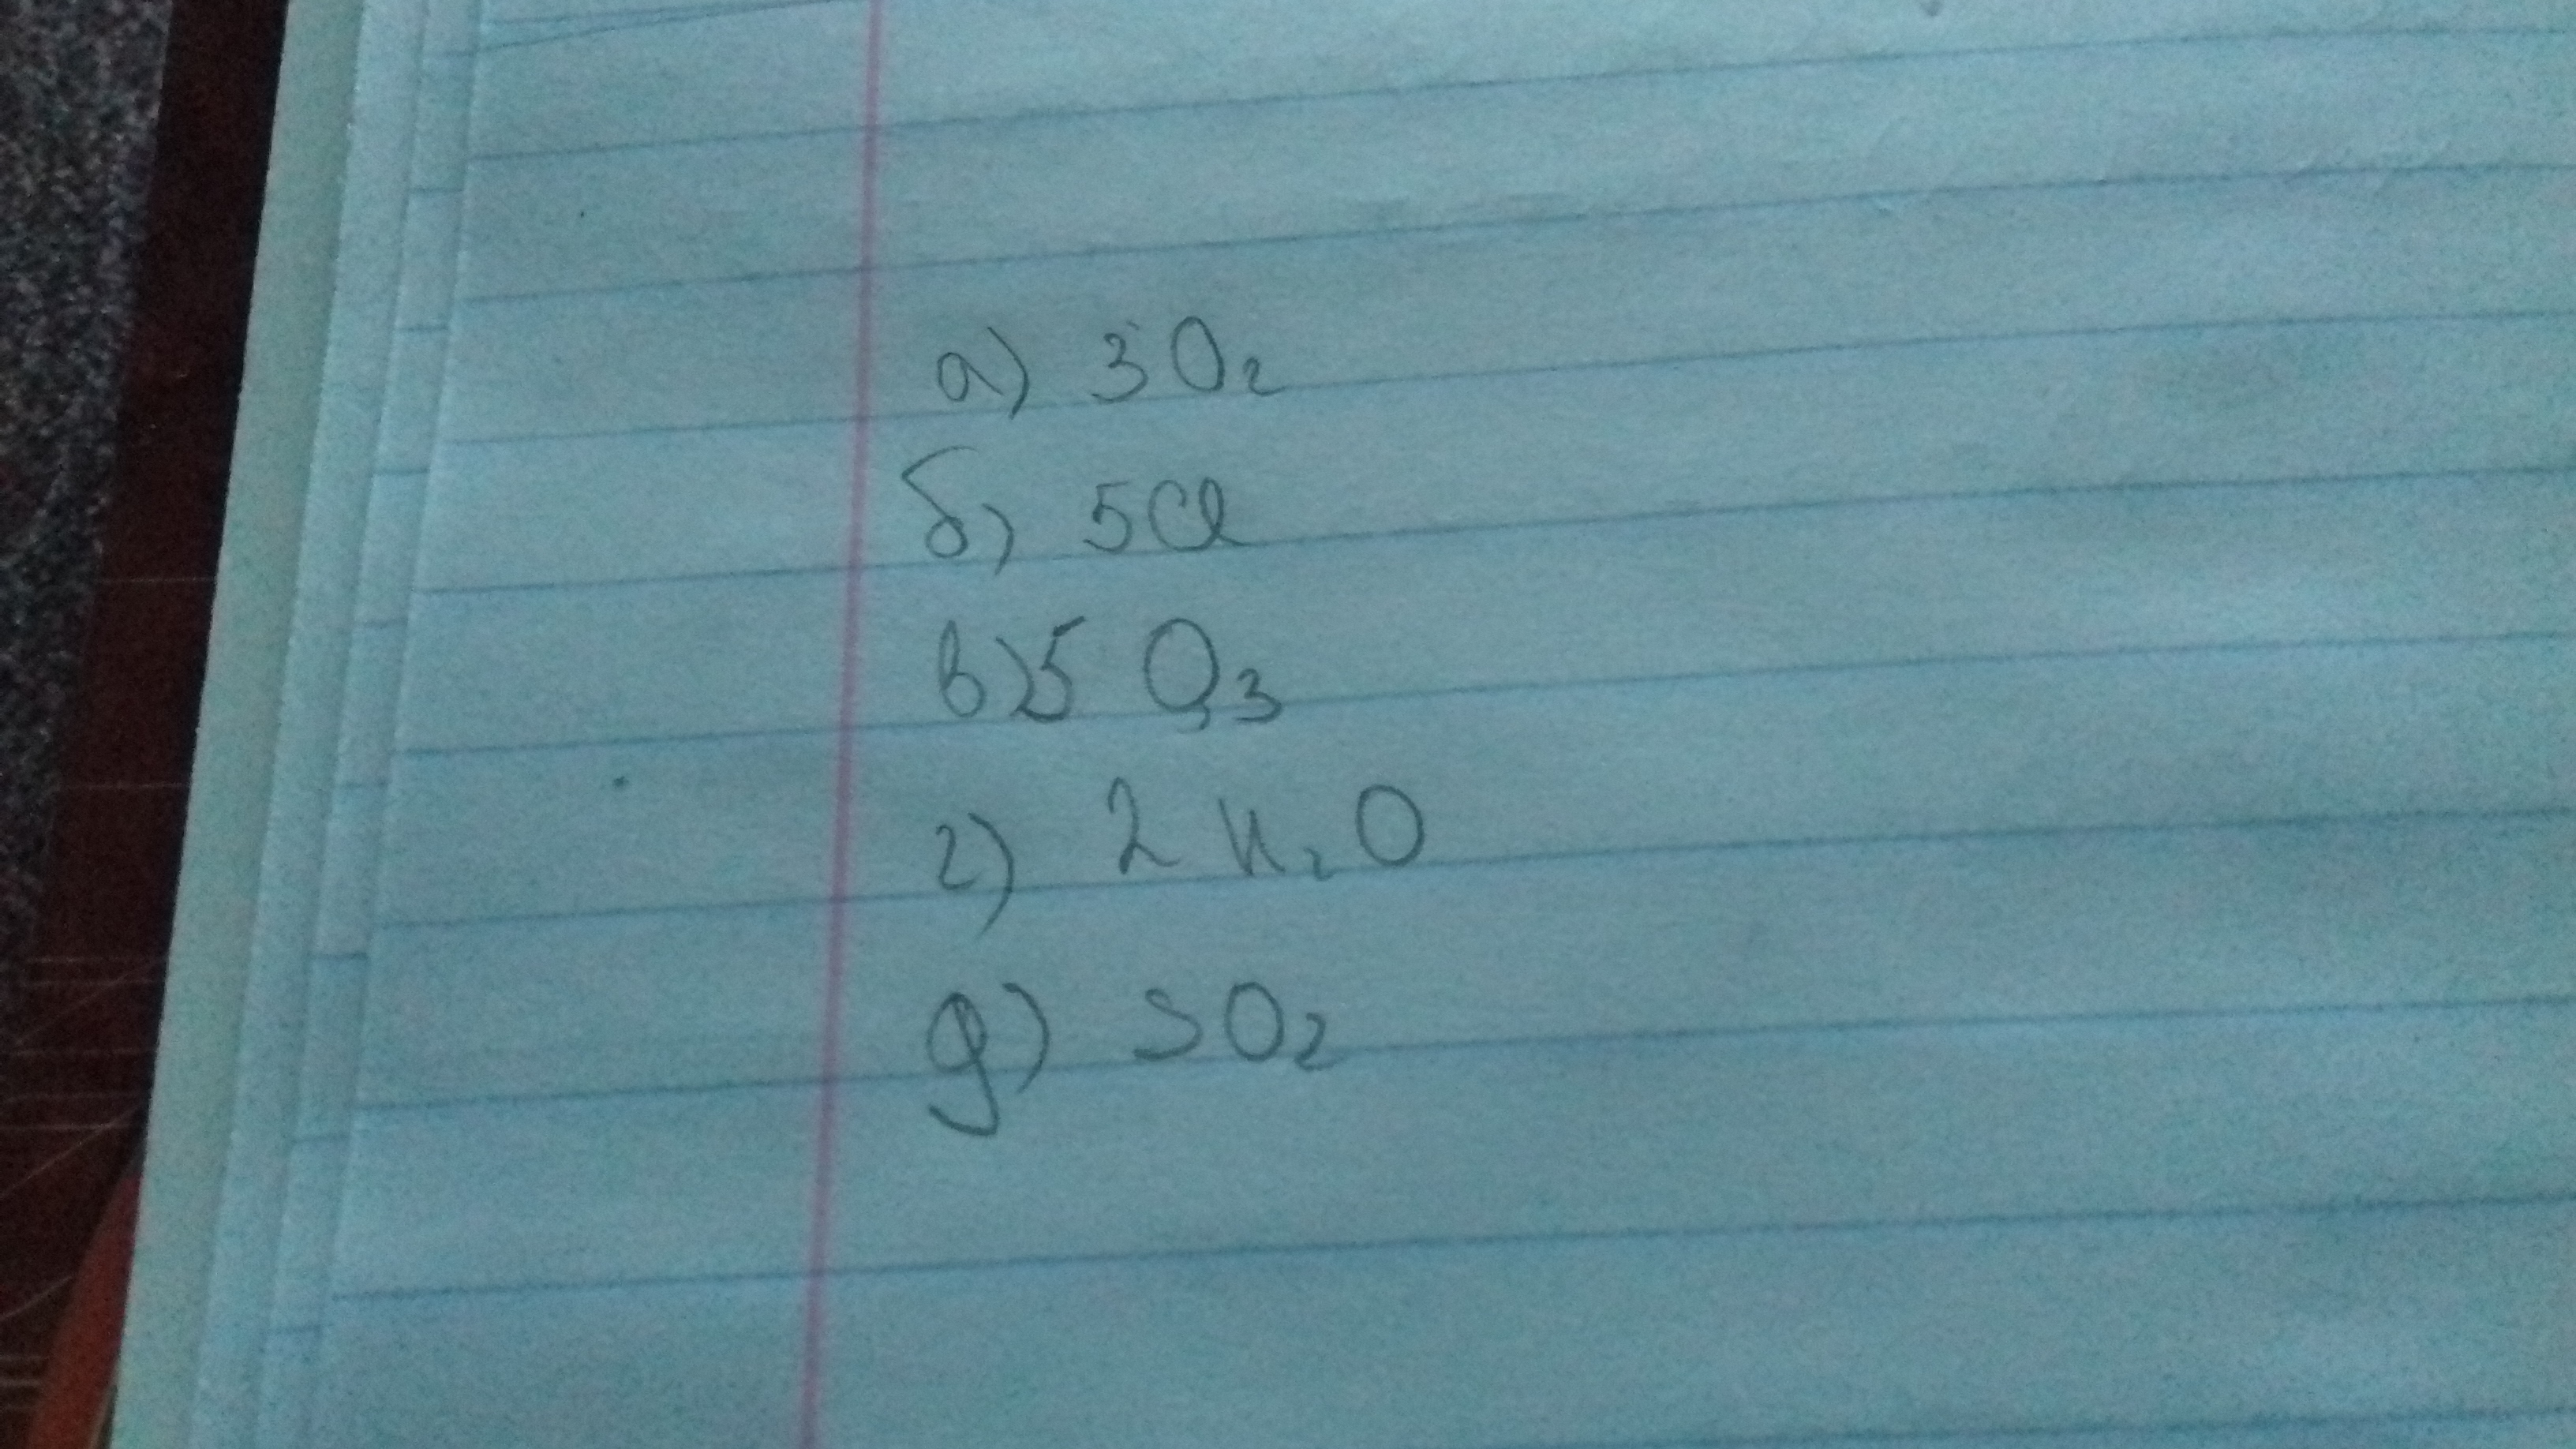 а) 3O₂
б) 5Cl
в) 5 O₃
г) 2 H₂O
д) SO₂